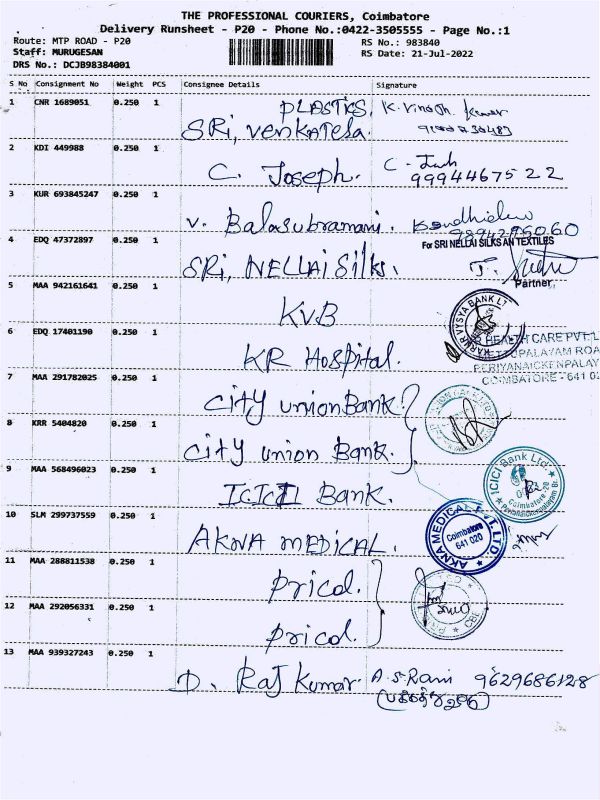 THE PROFESSIONAL COURIERS, Coimbatore
Delivery Runsheet - P20 - Phone No.:0422-3505555 - Page No.:1
Route: MTP ROAD - P20 RS No.: 983840
Staff: MURUGESAN RS Date: 21-Jul-2022
DRS No.: DCJB98384001
S No Consignment No Weight PCS Consignee Details Signature
1 CNR 1689051 0.250 1 PLASTICS,
SRi, Venkatesa.
2 KDI 449988 0.250 1
C. Joseph. 9994467522
3 KUR 693845247 0.250 1
V. Balasubramani.
4 EDQ 47372897 0.250 1 For SRI NELLAI SILKS AN TEXTILES
SRi, NELLAI Silks.
Partner.
5 MAA 942161641 0.250 1
KVB KARUR VYSYA BANK
6 EDQ 17401190 0.250 1 HEALTH CARE PVT.L
KR Hospital. PERIYANAICKENPALAY
COIMBATORE - 641 0
7 MAA 291782025 0.250 1
City union Bank.
8 KRR 5404820 0.250 1
City union Bank.
9 MAA 568496023 0.250 1 ICICI Bank Ltd.
ICICI Bank. Coimbatore 20
10 SLM 299737559 0.250 1 AKNA MEDICAL PVT. LTD.
AKNA MEDICAL. Coimbatore 641 020
11 MAA 288811538 0.250 1
pricol.
12 MAA 292056331 0.250 1
pricol. CBE
13 MAA 939327243 0.250 1
D. Raj Kumar. A.S. Rani 9629686128